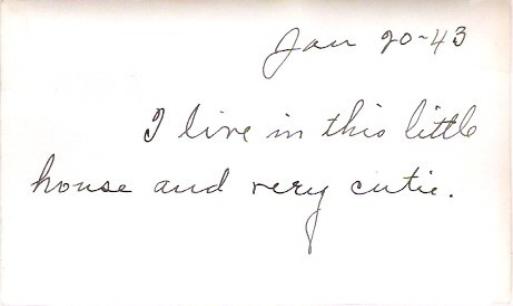 Jan 20-43
I live in this little
house and very cutie.